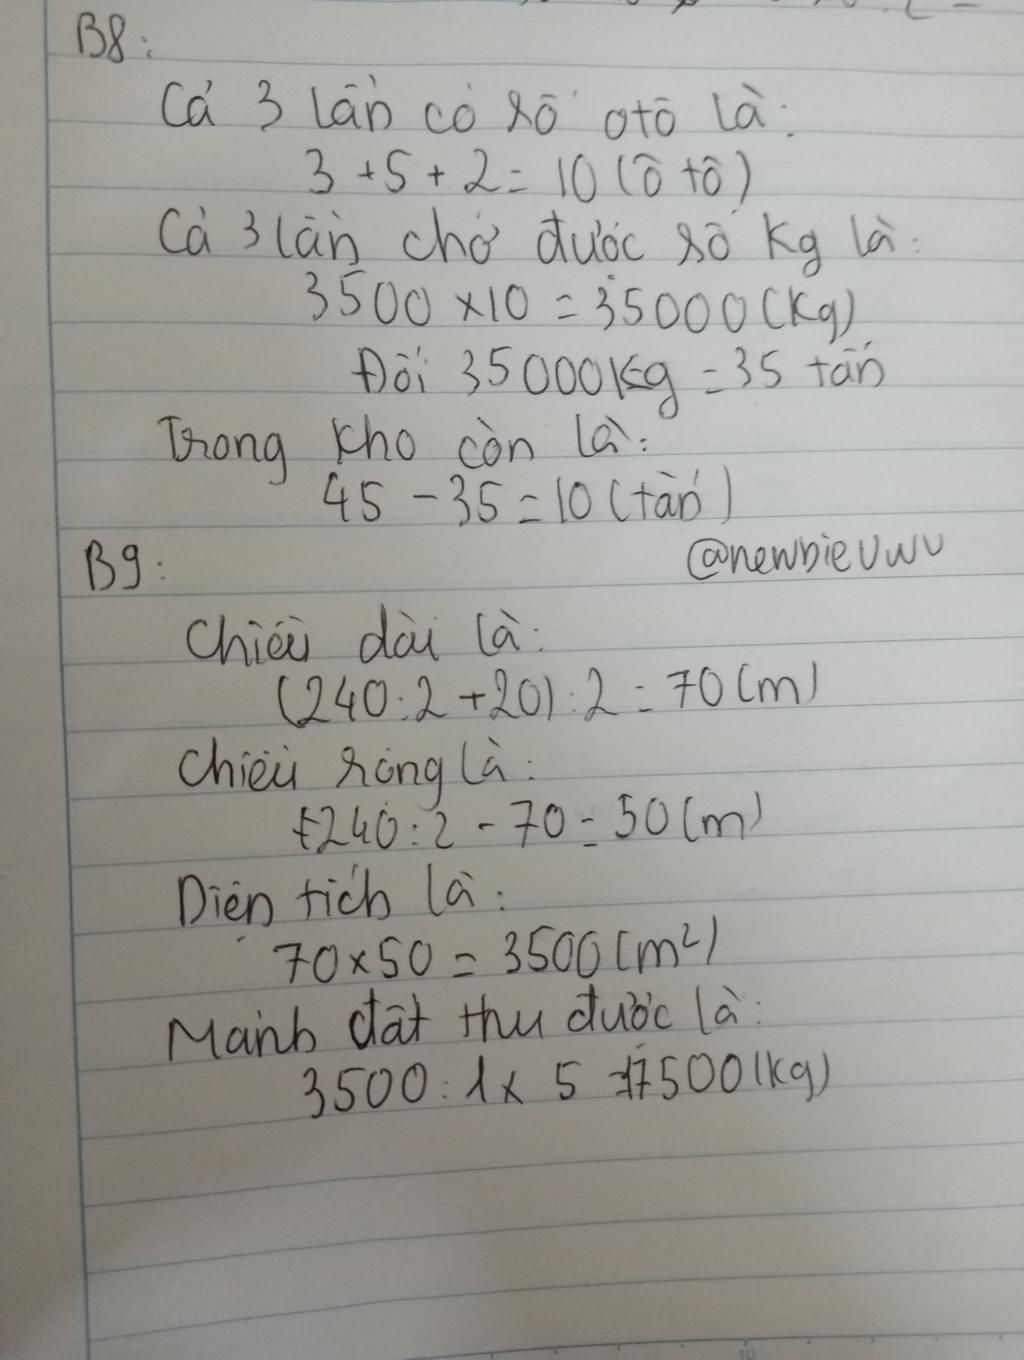 B8:
Cả 3 lần có số otô là:
3 + 5 + 2 = 10 (ô tô)
Cả 3 lần chở được số kg là:
3500 × 10 = 35000 (kg)
Đổi 35000kg = 35 tấn
Trong kho còn là:
45 - 35 = 10 (tấn)
B9:
@newbieUwU
Chiều dài là:
(240 : 2 + 20) : 2 = 70 (m)
Chiều rộng là:
240 : 2 - 70 = 50 (m)
Diện tích là:
70 × 50 = 3500 (m²)
Mảnh đất thu được là:
3500 : 1 × 5 = 17500 (kg)
10